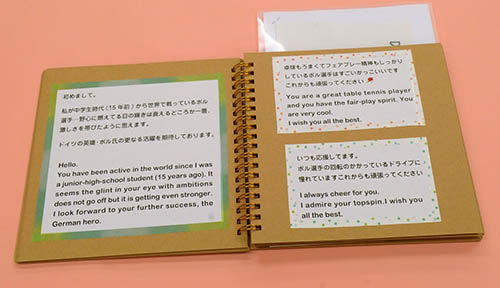 初めまして。
私が中学生時代(15年前)から世界で戦っているボル
選手…野心に燃えてる目の輝きは衰えるどころか一層、
激しさを帯びたように思えます。
ドイツの英雄・ボル氏の更なる活躍を期待しております。
Hello.
You have been active in the world since I was
a junior-high-school student (15 years ago). It
seems the glint in your eye with ambitions
does not go off but it is getting even stronger.
I look forward to your further success, the
German hero.
卓球もうまくてフェアプレー精神もしっかり
しているボル選手はすごいかっこいいです
これからも頑張ってください
You are a great table tennis player
and you have the fair-play spirit. You
are very cool.
I wish you all the best.
いつも応援してます。
ボル選手の回転のかかっているドライブに
憧れていますこれからも頑張ってください
I always cheer for you.
I admire your topspin.I wish you
all the best.